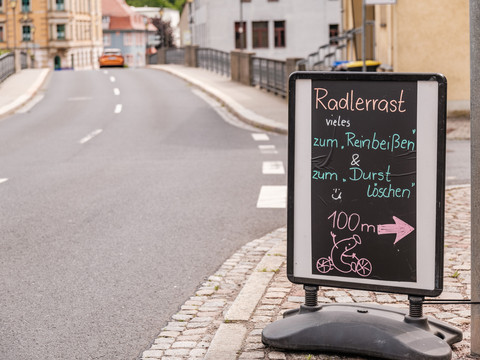 Radlerrast
vieles
zum „Reinbeißen"
&
zum „Durst
löschen"
100m